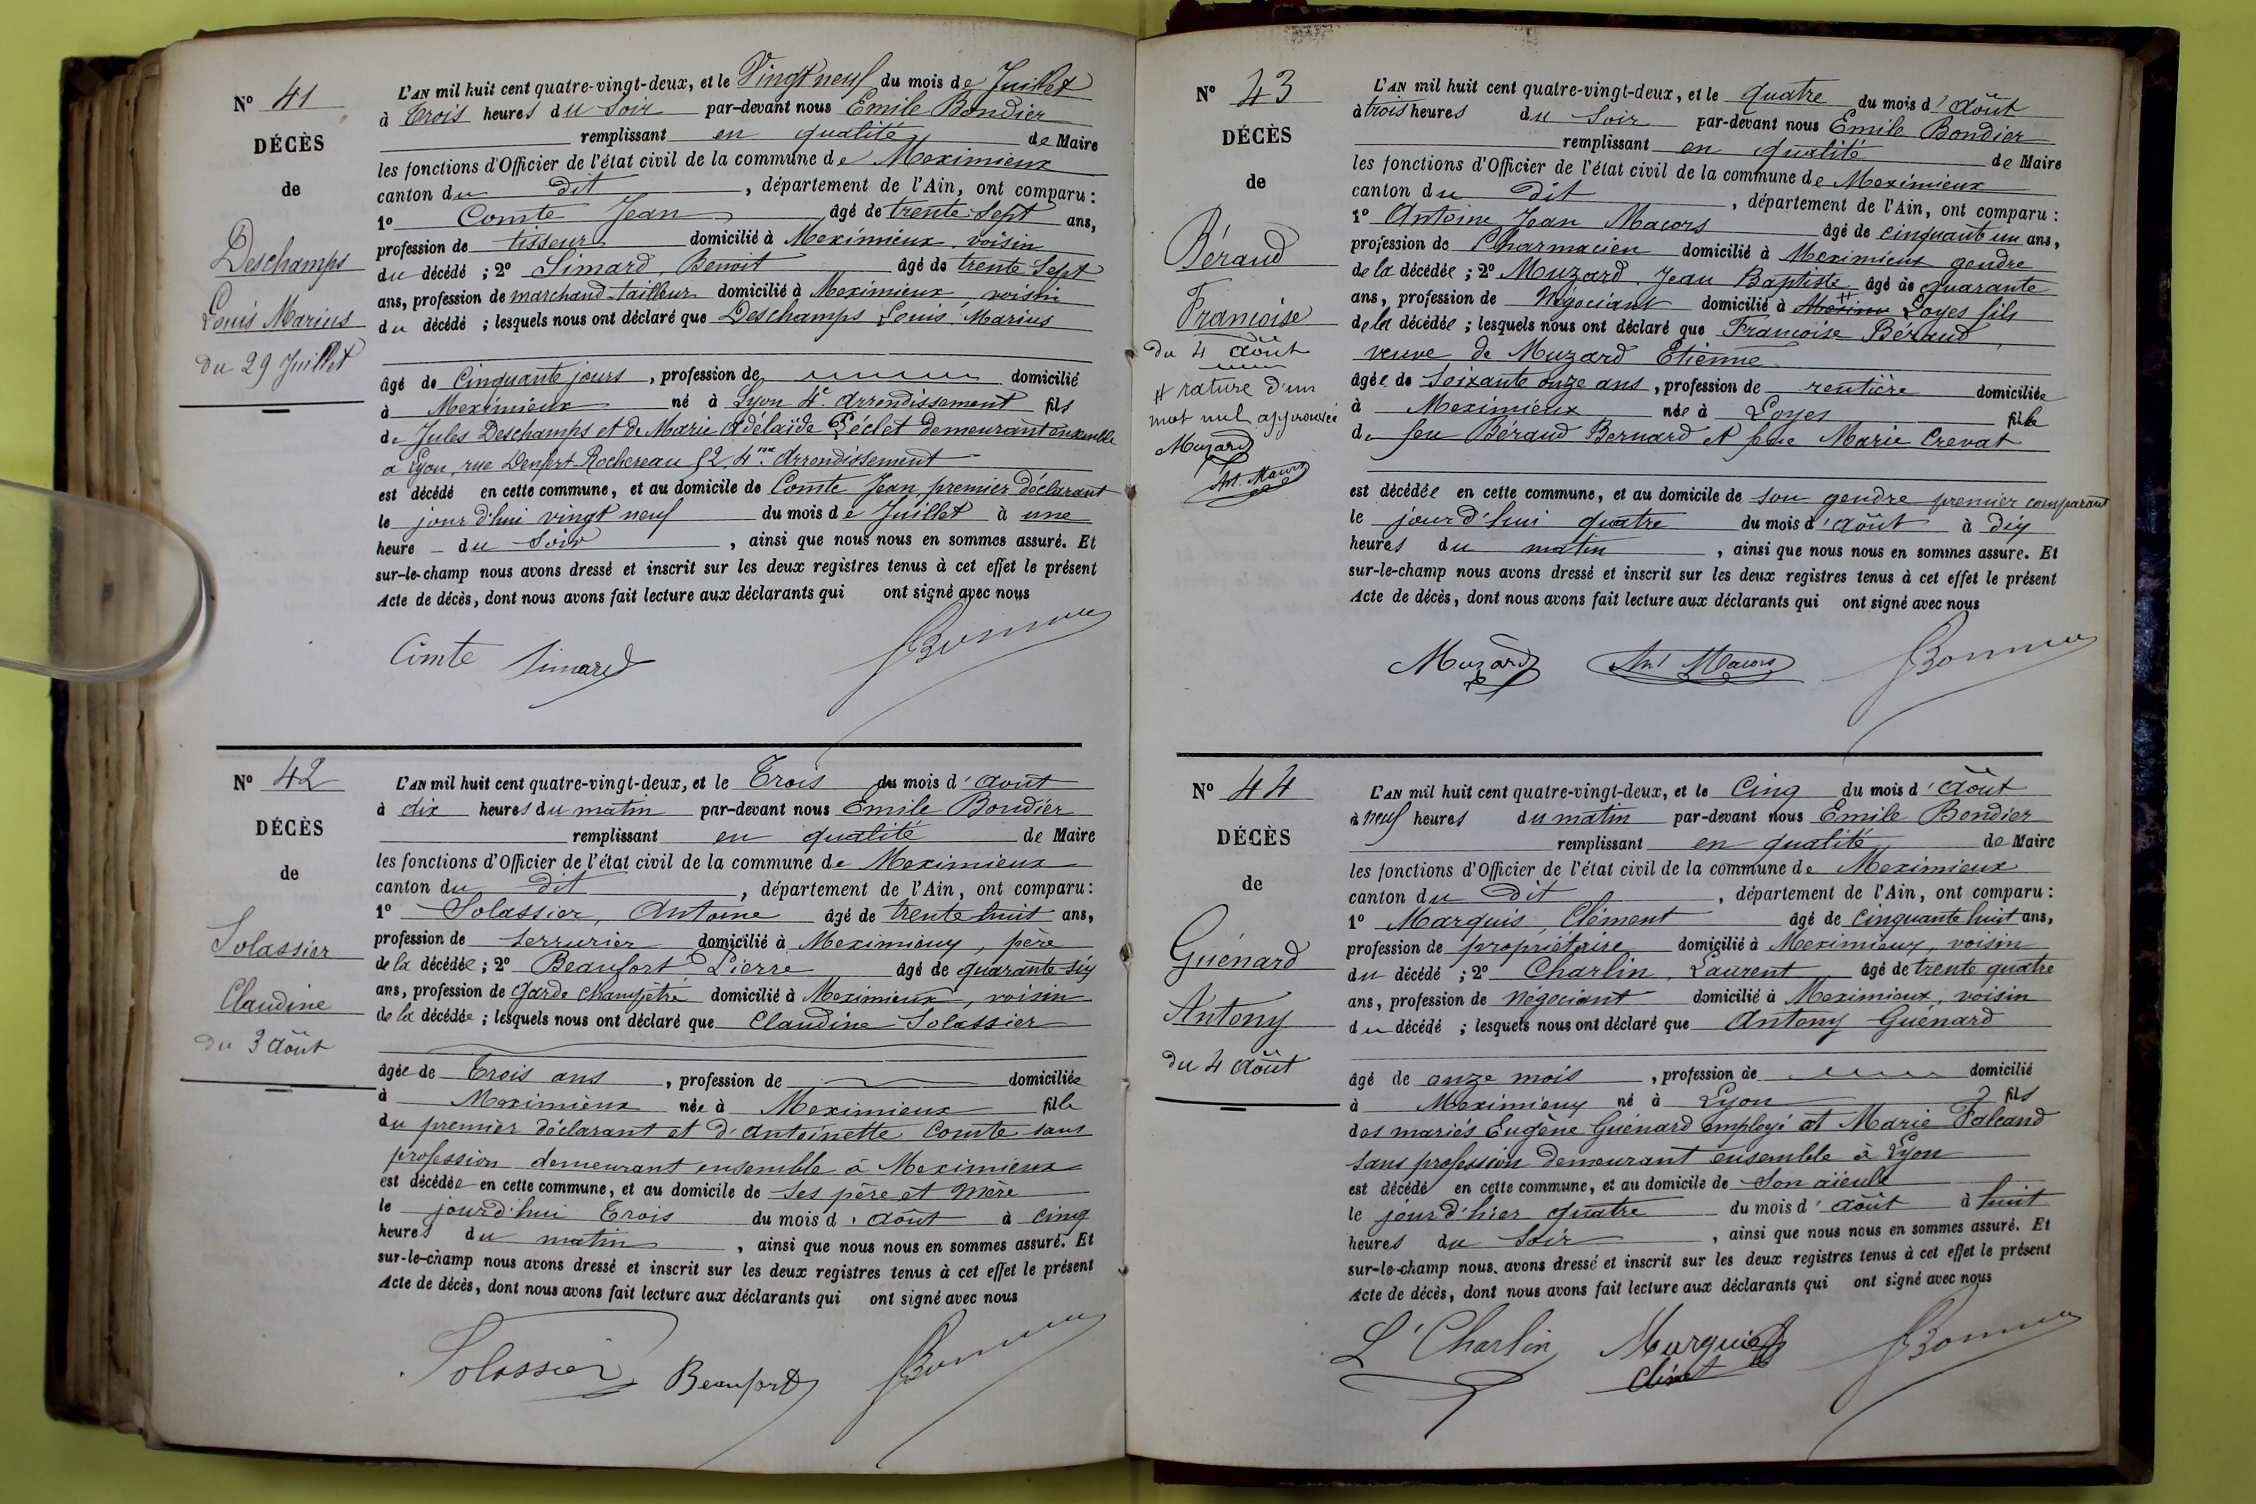 N° 41
DÉCÈS
de
Deschamps
Louis Marius
du 29 Juillet
L'AN mil huit cent quatre-vingt-deux, et le Vingt neuf du mois de Juillet
à Trois heures du Soir par-devant nous Emile Bondier
remplissant en qualité de Maire
les fonctions d'Officier de l'état civil de la commune de Meximieux
canton du dit, département de l'Ain, ont comparu :
1° Comte Jean âgé de trente-Sept ans,
profession de tisseur domicilié à Meximieux, voisin
du décédé ; 2° Simard, Benoit âgé de trente Sept
ans, profession de marchand-tailleur domicilié à Meximieux, voisin
du décédé ; lesquels nous ont déclaré que Deschamps Louis Marius
âgé de Cinquante jours, profession de domicilié
à Meximieux né à Lyon 4e arrondissement fils
de Jules Deschamps et de Marie Adélaïde Péclet demeurant ensemble
a Lyon, rue Denfert Rochereau 52, 4me Arrondissement
est décédé en cette commune, et au domicile de Comte Jean, premier déclarant
le jour d'hui vingt neuf du mois de Juillet à une
heure du Soir, ainsi que nous nous en sommes assuré. Et
sur-le-champ nous avons dressé et inscrit sur les deux registres tenus à cet effet le présent
Acte de décès, dont nous avons fait lecture aux déclarants qui ont signé avec nous
Comte Simard
N° 42
DÉCÈS
de
Solassier
Claudine
du 3 Août
L'AN mil huit cent quatre-vingt-deux, et le Trois du mois d'Août
à dix heures du matin par-devant nous Emile Bondier
remplissant en qualité de Maire
les fonctions d'Officier de l'état civil de la commune de Meximieux
canton du dit, département de l'Ain, ont comparu :
1° Solassier, Antoine âgé de trente huit ans,
profession de serrurier domicilié à Meximieux, père
de la décédée ; 2° Beaufort Pierre âgé de quarante-six
ans, profession de garde champêtre domicilié à Meximieux, voisin
de la décédée ; lesquels nous ont déclaré que Claudine Solassier
âgée de Trois ans, profession de domiciliée
à Meximieux née à Meximieux fille
du premier déclarant et d'Antoinette Comte sans
profession demeurant ensemble à Meximieux
est décédée en cette commune, et au domicile de Ses père et mère
le jourd'hui Trois du mois d'Août à cinq
heures du matin, ainsi que nous nous en sommes assuré. Et
sur-le-champ nous avons dressé et inscrit sur les deux registres tenus à cet effet le présent
Acte de décès, dont nous avons fait lecture aux déclarants qui ont signé avec nous
Solassier Beaufort
N° 43
DÉCÈS
de
Béraud
Francoise
du 4 Août
# rature d'un
mot nul approuvée
Muzard
Ant. Macors
L'AN mil huit cent quatre-vingt-deux, et le quatre du mois d'Août
à trois heures du Soir par-devant nous Emile Bondier
remplissant en qualité de Maire
les fonctions d'Officier de l'état civil de la commune de Meximieux
canton du dit, département de l'Ain, ont comparu :
1° Antoine Jean Macors âgé de cinquante un ans,
profession de Pharmacien domicilié à Meximieux gendre
de la décédée ; 2° Muzard, Jean Baptiste âgé de quarante
ans, profession de Négociant domicilié à # Loyes fils
de la décédée ; lesquels nous ont déclaré que Francoise Béraud,
veuve de Muzard Etienne
âgée de Soixante onze ans, profession de rentière domiciliée
à Meximieux née à Loyes fille
de feu Béraud Bernard et feue Marie Crevat
est décédée en cette commune, et au domicile de son gendre premier comparant
le jourd'hui quatre du mois d'Août à dix
heures du matin, ainsi que nous nous en sommes assuré. Et
sur-le-champ nous avons dressé et inscrit sur les deux registres tenus à cet effet le présent
Acte de décès, dont nous avons fait lecture aux déclarants qui ont signé avec nous
Muzard Ant Macors
N° 44
DÉCÈS
de
Guénard
Antony
du 4 Août
L'AN mil huit cent quatre-vingt-deux, et le Cinq du mois d'Août
à neuf heures du matin par-devant nous Emile Bondier
remplissant en qualité de Maire
les fonctions d'Officier de l'état civil de la commune de Meximieux
canton du Dit, département de l'Ain, ont comparu :
1° Marquis, Clément âgé de cinquante huit ans,
profession de propriétaire domicilié à Meximieux, voisin
du décédé ; 2° Charlin, Laurent âgé de trente quatre
ans, profession de négociant domicilié à Meximieux, voisin
du décédé ; lesquels nous ont déclaré que Antony Guénard
âgé de onze mois, profession de domicilié
à Meximieux né à Lyon fils
des mariés Eugène Guénard employé et Marie Falcand
sans profession demeurant ensemble à Lyon
est décédé en cette commune, et au domicile de Son aïeule
le jour d'hier quatre du mois d'Août à huit
heures du Soir, ainsi que nous nous en sommes assuré. Et
sur-le-champ nous avons dressé et inscrit sur les deux registres tenus à cet effet le présent
Acte de décès, dont nous avons fait lecture aux déclarants qui ont signé avec nous
L. Charlin Marquis
Clément